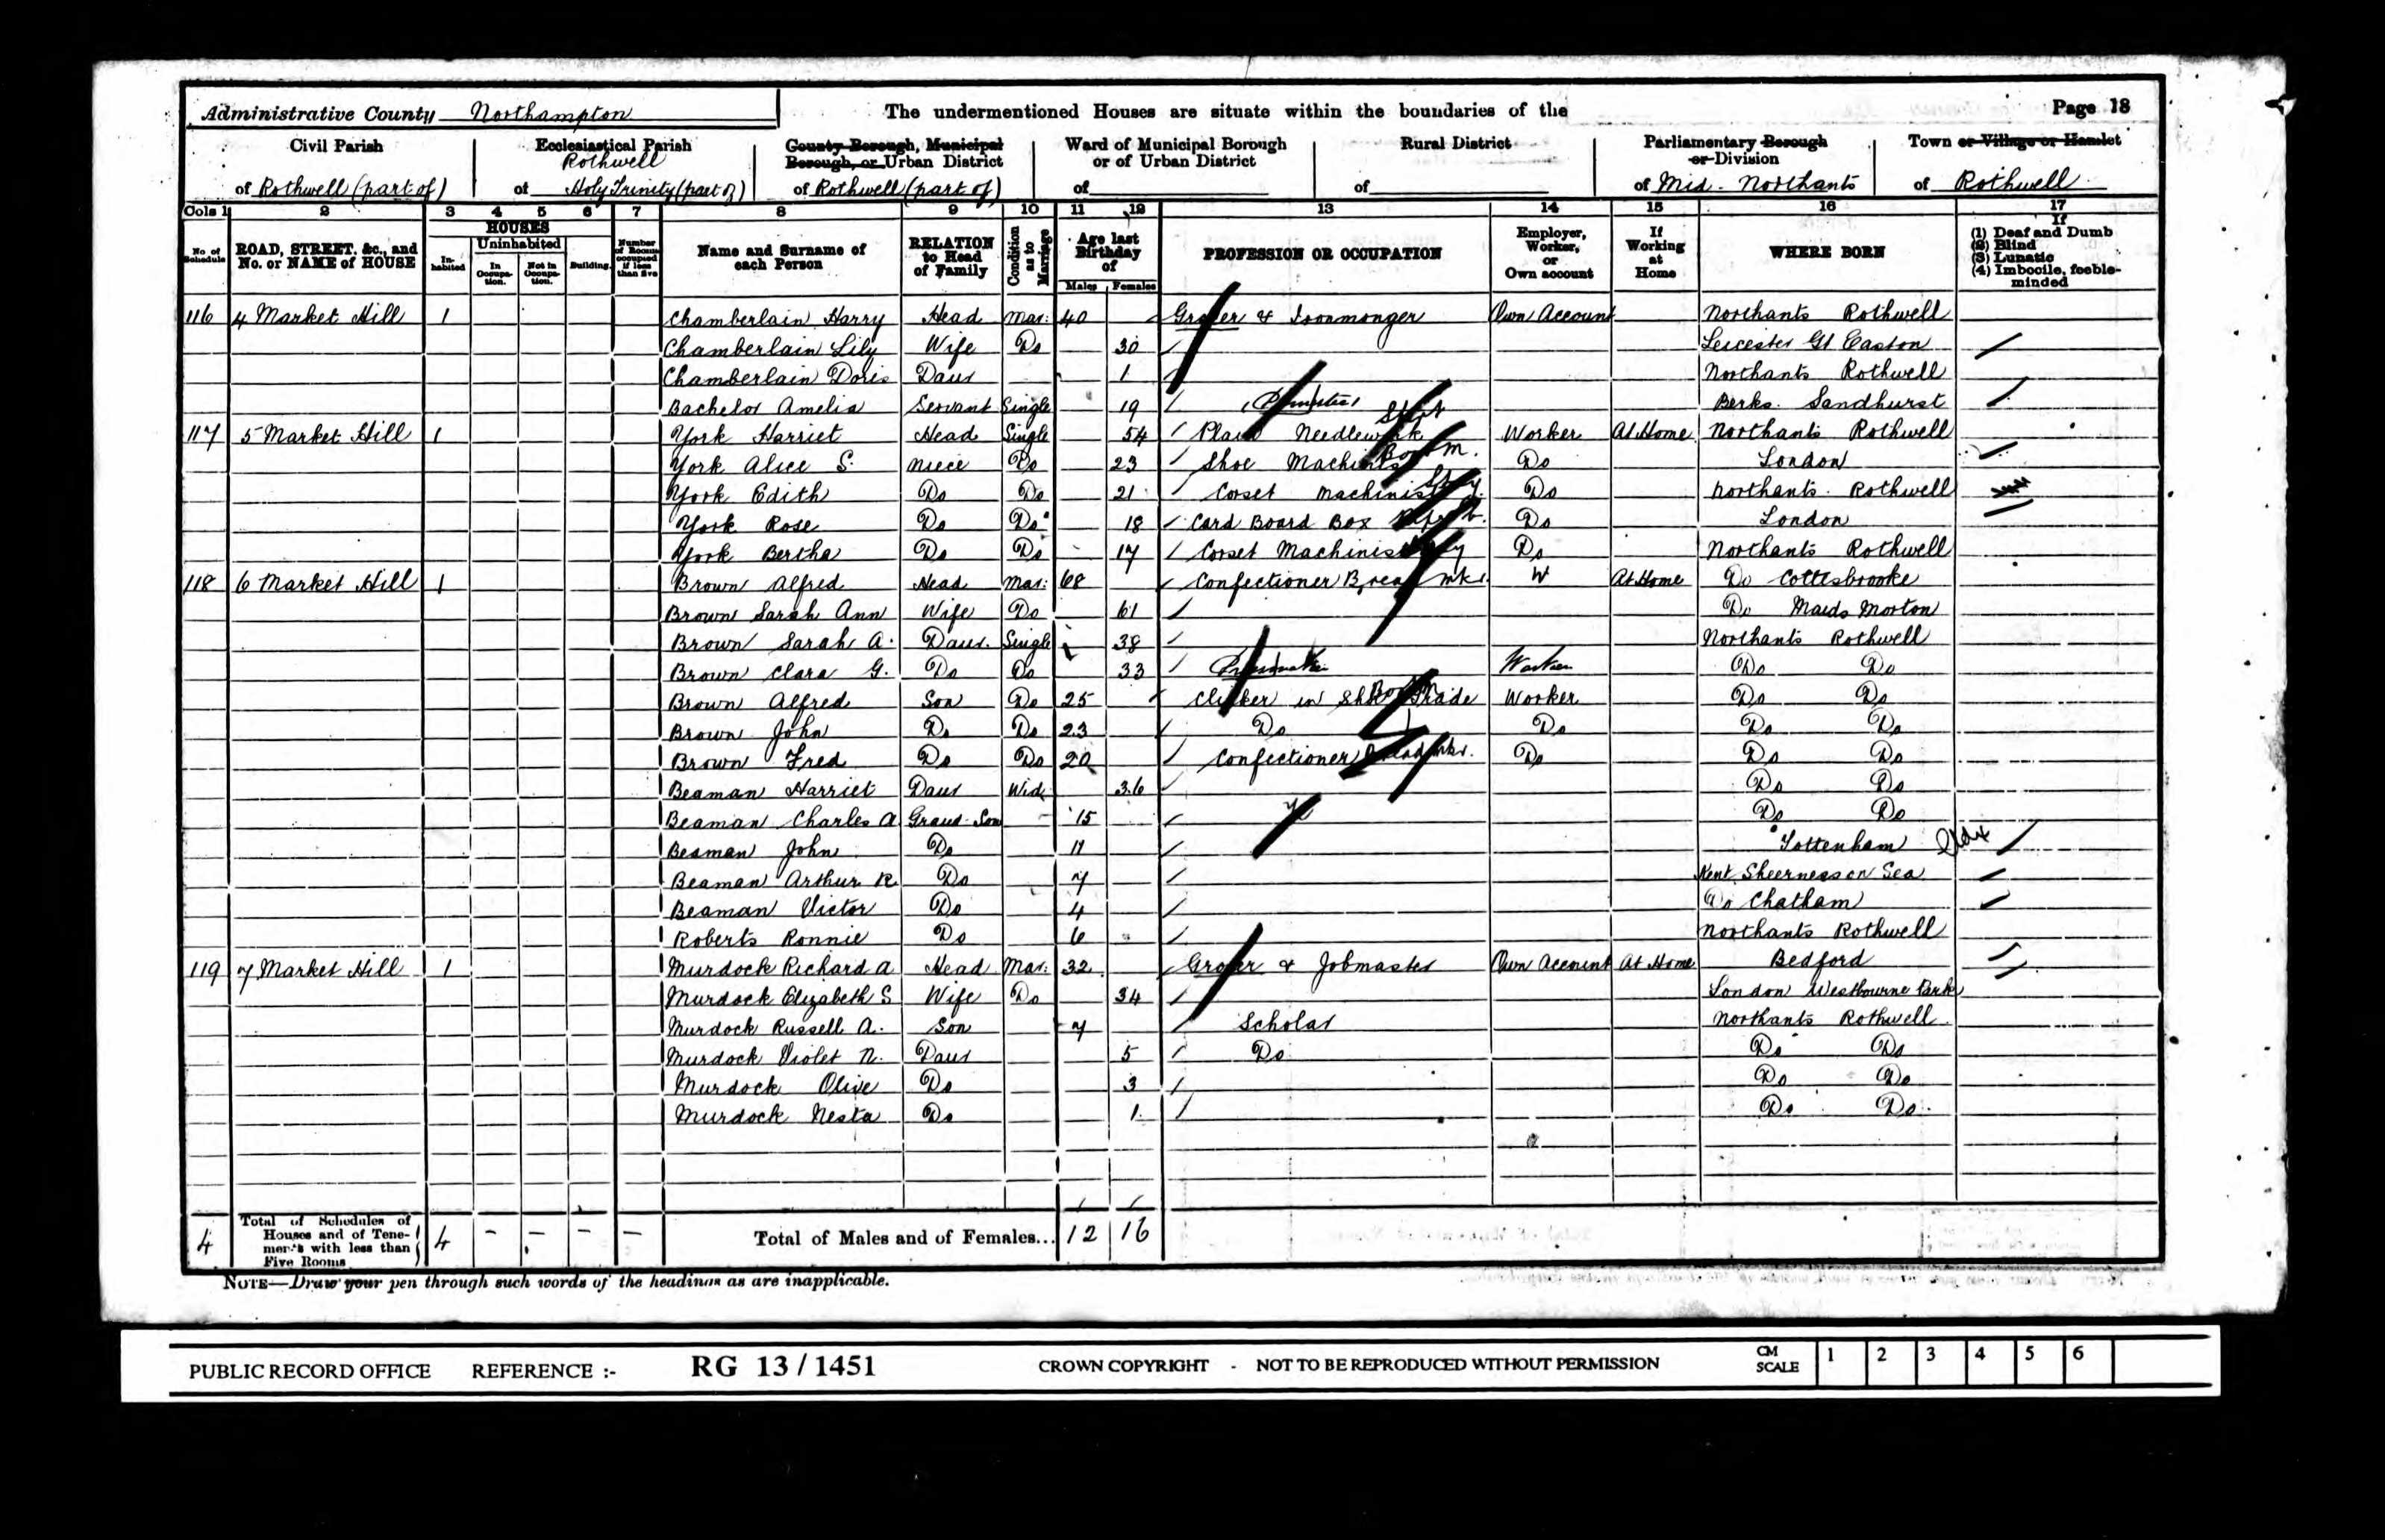 Administrative County Northampton The undermentioned Houses are situate within the boundaries of the Page 18
Civil Parish of Rothwell (part of)
Ecclesiastical Parish of Rothwell Holy Trinity (part of)
County Borough, Municipal Borough, or Urban District of Rothwell (part of)
Ward of Municipal Borough or of Urban District of
Rural District of
Parliamentary Borough or Division of Mid. Northants
Town or Village or Hamlet of Rothwell
Cols 1 2 3 4 5 6 7 8 9 10 11 12 13 14 15 16 17
No of Schedule
ROAD, STREET, &c., and No. or NAME of HOUSE
HOUSES
In-habited
Uninhabited
In Occupa-tion.
Not in Occupa-tion.
Building.
Number of Rooms occupied if less than five
Name and Surname of each Person
RELATION to Head of Family
Condition as to Marriage
Age last Birthday of
Males Females
PROFESSION OR OCCUPATION
Employer, Worker, or Own account
If Working at Home
WHERE BORN
If
(1) Deaf and Dumb
(2) Blind
(3) Lunatic
(4) Imbecile, feeble-minded
116 4 Market Hill 1 Chamberlain Harry Head Mar: 40 Grocer & Ironmonger Own Account Northants Rothwell
Chamberlain Lily Wife Do 30 Leicester Gt Easton
Chamberlain Doris Daur 1 Northants Rothwell
Bachelor Amelia Servant Single 19 Berks. Sandhurst
117 5 Market Hill 1 York Harriet Head Single 54 Plain Needlework Worker At Home Northants Rothwell
York Alice S. Niece Do 23 Shoe Machinist Do London
York Edith Do Do 21 Corset Machinist Do Northants. Rothwell
York Rose Do Do 18 Card Board Box Do London
York Bertha Do Do 17 Corset Machinist Do Northants Rothwell
118 6 Market Hill 1 Brown Alfred Head Mar: 68 Confectioner Bread mkr. W At Home Do Cottesbrooke
Brown Sarah Ann Wife Do 61 Do Maids Morton
Brown Sarah A. Daur. Single 38 Northants Rothwell
Brown Clara G. Do Do 33 Worker Do Do
Brown Alfred Son Do 25 Clicker in Shoe Trade Worker Do Do
Brown John Do Do 23 Do Do Do Do
Brown Fred Do Do 20 Confectioner Bread mkr. Do Do Do
Beaman Harriet Daur Wid. 36 Do Do
Beaman Charles A Grand-Son 15 Do Do
Beaman John Do 11 Tottenham
Beaman Arthur R. Do 7 Kent Sheerness on Sea
Beaman Victor Do 4 Do Chatham
Roberts Ronnie Do 6 Northants Rothwell
119 7 Market Hill 1 Murdock Richard A Head Mar: 32 Grocer & Jobmaster Own Account At Home Bedford
Murdock Elizabeth S Wife Do 34 London Westbourne Park
Murdock Russell A. Son 7 Scholar Northants Rothwell
Murdock Violet N. Daur 5 Do Do Do
Murdock Olive Do 3 Do Do
Murdock Nesta Do 1 Do Do
4 Total of Schedules of Houses and of Tene-ments with less than Five Rooms 4 - - - - Total of Males and of Females... 12 16
NOTE—Draw your pen through such words of the headings as are inapplicable.
PUBLIC RECORD OFFICE REFERENCE :- RG 13 / 1451 CROWN COPYRIGHT - NOT TO BE REPRODUCED WITHOUT PERMISSION CM SCALE 1 2 3 4 5 6